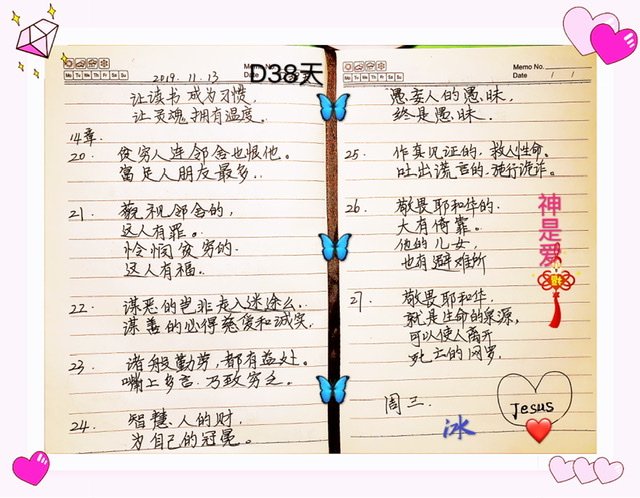 Memo No.
Mo Tu We Th Fr Sa Su
Date / /
2019.11.13
D38天
让读书成为习惯,
让灵魂拥有温度。
14章.
20. 贫穷人连邻舍也恨他。
富足人朋友最多.
21. 藐视邻舍的,
这人有罪。
怜悯贫穷的.
这人有福.
22. 谋恶的岂非走入迷途么.
谋善的必得慈爱和诚实.
23. 诸般勤劳,都有益处。
嘴上多言.乃致穷乏。
24. 智慧人的财.
为自己的冠冕。
Memo No.
Mo Tu We Th Fr Sa Su
Date / /
愚妄人的愚昧,
终是愚昧.
25. 作真见证的,救人性命。
吐出谎言的.施行诡诈。
26. 敬畏耶和华的.
大有倚靠。
他的儿女,
也有避难所
27. 敬畏耶和华,
就是生命的泉源,
可以使人离开
死亡的网罗.
周三.
冰
Jesus
神是爱